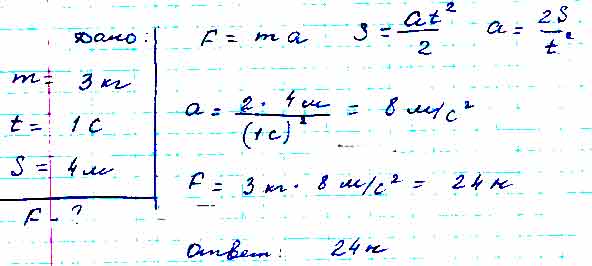 Дано:
m = 3 кг
t = 1 с
S = 4 м
F - ?
F = ma S = at²/2 a = 2S/t²
a = 2 · 4м/(1с)² = 8 м/с²
F = 3 кг · 8 м/с² = 24 н
Ответ: 24 н